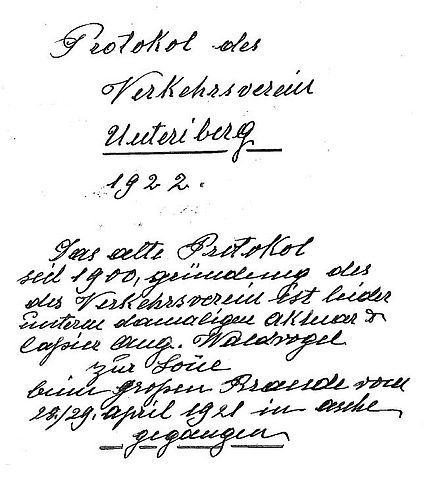 Protokol des
Verkehrsverein
Unteriberg
1922.
Das alte Protokol
seit 1900, gründung des
des Verkehrsverein ist leider
unterm damaligen Aktuar &
Casier Aug. Waldvogel
zur
beim großen Brande vom
28./29. April 1921 in asche
gegangen